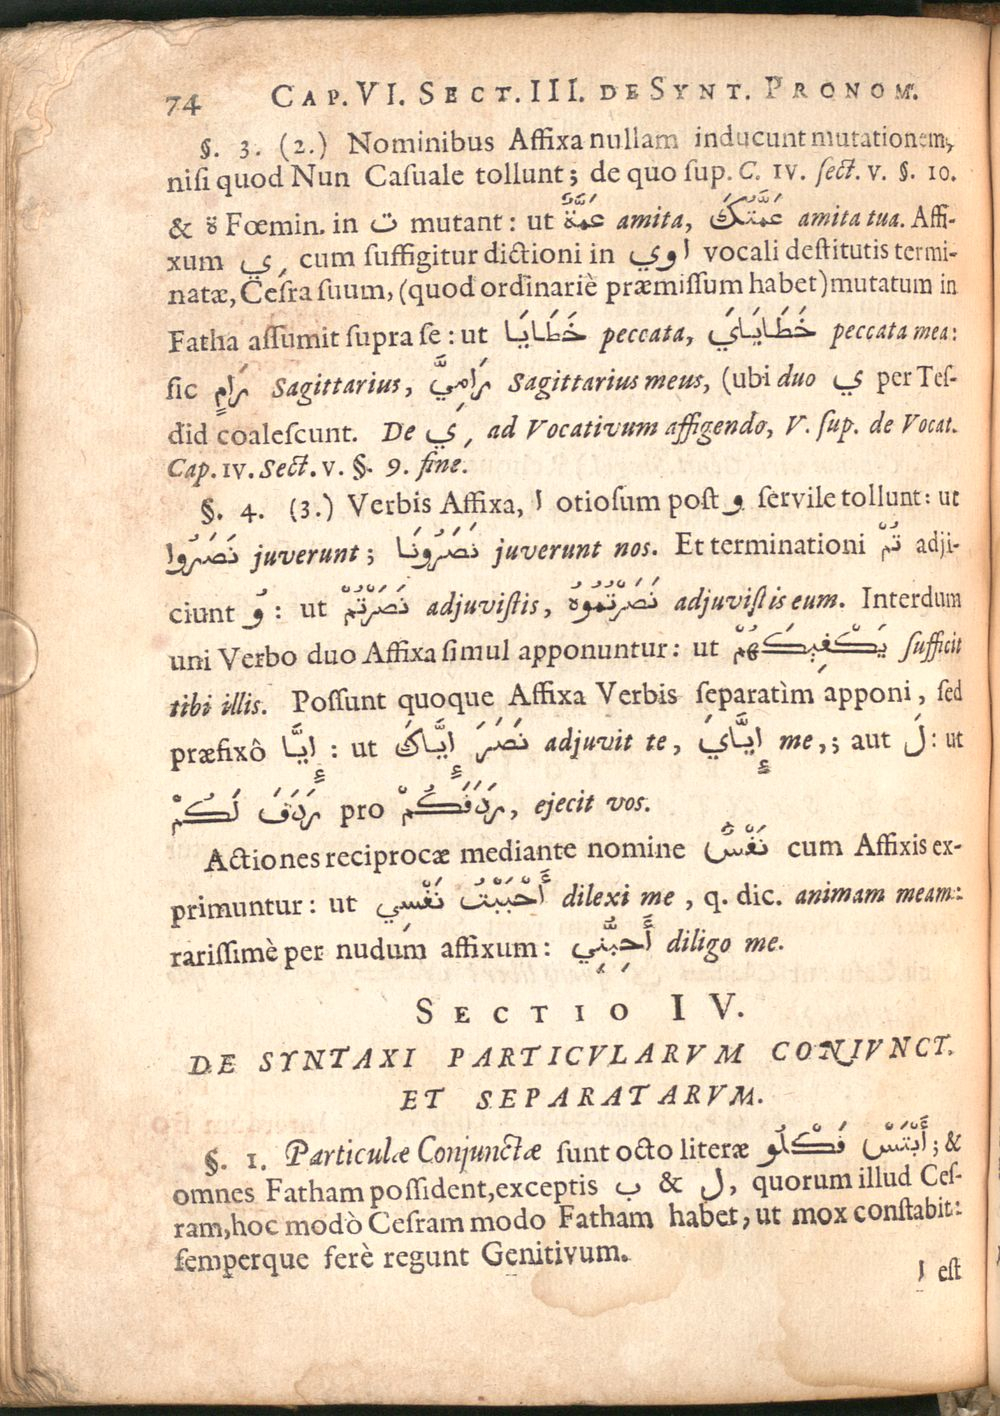 74 CAP. VI. SECT. III. DE SYNT. PRONOM.
§. 3. (2.) Nominibus Affixa nullam inducunt mutationem,
nisi quod Nun Casuale tollunt; de quo sup. C. IV. sect. V. §. 10.
& ة Fœmin. in ت mutant: ut عَمَّةٌ amita, عَمَّتُكَ amita tua. Affi-
xum ي, cum suffigitur dictioni in اوي vocali destitutis termi-
natæ, Cesra suum, (quod ordinariè præmissum habet) mutatum in
Fatha assumit supra se: ut خَطَايَا peccata, خَطَايَايَ peccata mea:
sic رَامٍ Sagittarius, رَامِيَّ Sagittarius meus, (ubi duo ي per Tes-
did coalescunt. De ي, ad Vocativum affigendo, V. sup. de Vocat.
Cap. IV. Sect. V. §. 9. fine.
§. 4. (3.) Verbis Affixa, ا otiosum post و servile tollunt: ut
نَصَرُوا juverunt; نَصَرُونَا juverunt nos. Et terminationi تُمْ adji-
ciunt وُ: ut نَصَرْتُمْ adjuvistis, نَصَرْتُمُوهُ adjuvistis eum. Interdum
uni Verbo duo Affixa simul apponuntur: ut يَكْفِيكَهُمْ sufficit
tibi illis. Possunt quoque Affixa Verbis separatìm apponi, sed
præfixô إِيَّا: ut نَصَرَ إِيَّاكَ adjuvit te, إِيَّايَ me,; aut لَ: ut
رَدَفَ لَكُمْ pro رَدَفَكُمْ, ejecit vos.
Actiones reciprocæ mediante nomine نَفْسٌ cum Affixis ex-
primuntur: ut أَحْبَبْتُ نَفْسِي dilexi me, q. dic. animam meam:
rarissimè per nudum affixum: أَحِبُّنِي diligo me.
SECTIO IV.
DE SYNTAXI PARTICVLARVM CONJVNCT.
ET SEPARATARVM.
§. 1. Particulæ Conjunctæ sunt octo literæ أَبْتَسْ فَكْلُو; &
omnes Fatham possident, exceptis ب & ل, quorum illud Ces-
ram, hoc modò Cesram modo Fatham habet, ut mox constabit:
semperque ferè regunt Genitivum.
ا est